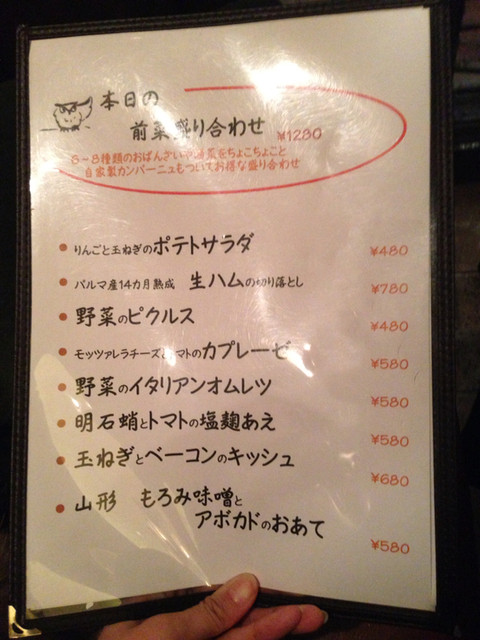 本日の
前菜盛り合わせ ¥1280
6~8種類のおばんざいや前菜をちょこちょこと
自家製カンパーニュもついてお得な盛り合わせ
りんごと玉ねぎのポテトサラダ ¥480
パルマ産14カ月熟成 生ハムの切り落とし ¥780
野菜のピクルス ¥480
モッツァレラチーズとトマトのカプレーゼ ¥580
野菜のイタリアンオムレツ ¥580
明石蛸とトマトの塩麹あえ ¥580
玉ねぎとベーコンのキッシュ ¥680
山形 もろみ味噌と
アボカドのおあて ¥580